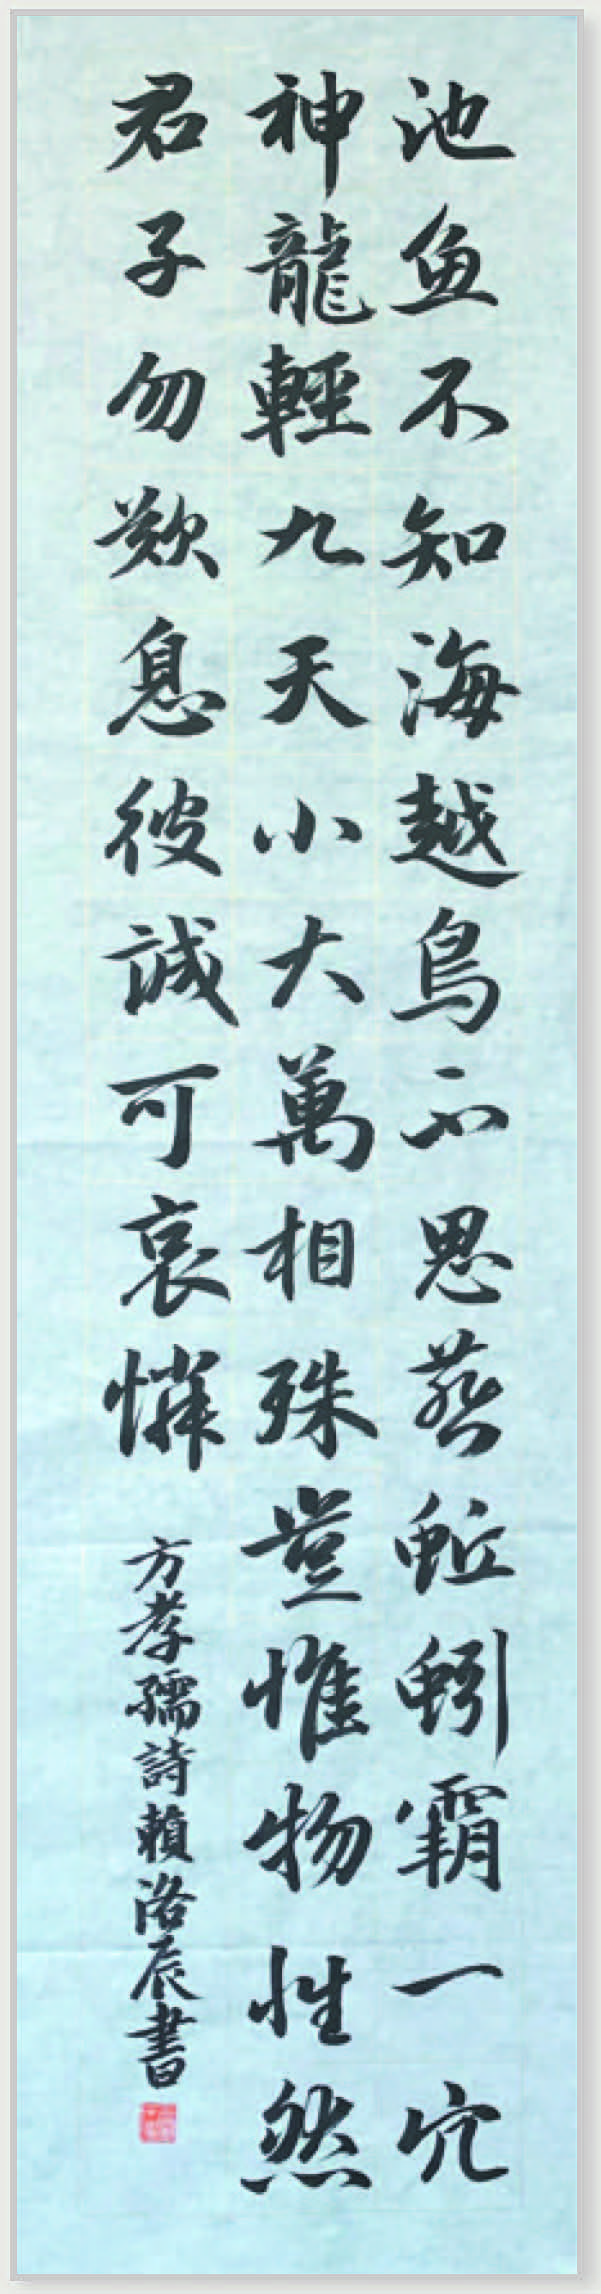 池鱼不知海越鳥不思燕蚯蚓霸一穴
神龍輕九天小大萬相殊豈惟物性然
君子勿歎息彼誠可哀憐
方孝孺詩賴洛辰書